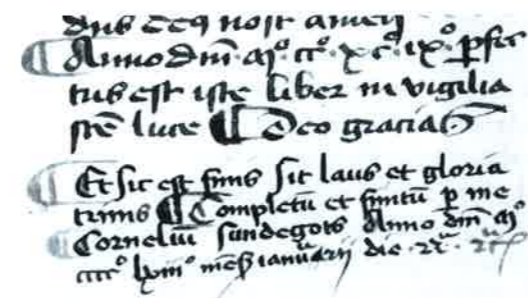 dns deus nostr amen
¶ Anno dm̄ · mº ccº · xcº · ixº · p̄fec
tus est iste liber in vigilia
stē lucie ¶ Deo gracias
¶ Et sic est finis sit laus et gloria
trinis ¶ Completū et finitū p me
¶ Corneliū sundegots Anno dm̄ mº
ccccº lxiiiº mēs ianuarij die · 22ª ·